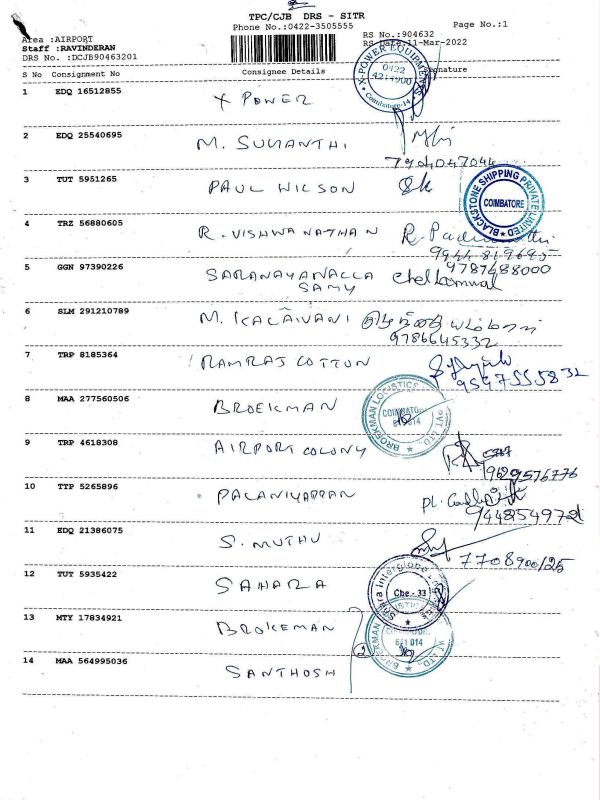 TPC/CJB DRS - SITR
Phone No.:0422-3505555
Page No.:1
Area :AIRPORT
Staff :RAVINDERAN
DRS No. :DCJB90463201
RS No.:904632
RS Date:11-Mar-2022
S No Consignment No Consignee Details Signature
X-POWER EQUIPMENTS
0422
4214900
Coimbatore-14
1 EDQ 16512855 X POWER
2 EDQ 25540695 M. SUMANTHI
7904047044
3 TUT 5951265 PAUL WILSON
BLACKSTONE SHIPPING PRIVATE LIMITED
COIMBATORE
4 TRZ 56880605 R. VISHWANATHAN
5 GGN 97390226 SARANAYANALLA
SAMY
9787488000
6 SLM 291210789 M. KALAIVANI
9786645332
7 TRP 8185364 RAMRAJ COTTON
8 MAA 277560506 BROEKMAN
BROEKMAN LOGISTICS PVT LTD.
9 TRP 4618308 AIRPORT COLONY
9629576776
10 TTP 5265896 PALANIYAPPAN
11 EDQ 21386075 S. MUTHU
12 TUT 5935422 SAHARA
Cbe - 33
13 MTY 17834921 BROKEMAN
641 014
14 MAA 564995036 SANTHOSH